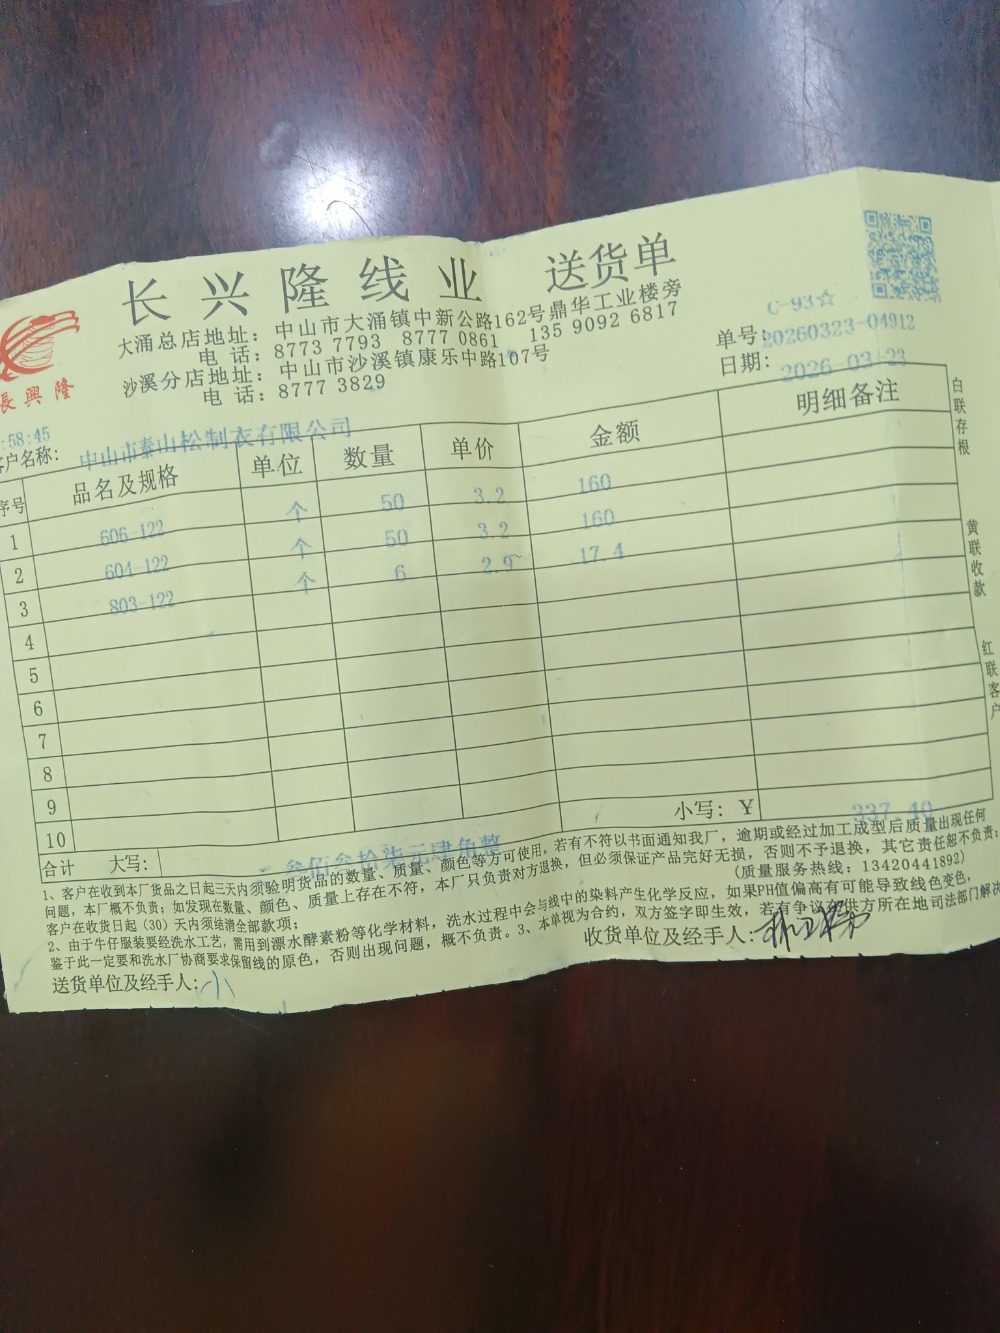 长兴隆线业 送货单
大涌总店地址：中山市大涌镇中新公路162号鼎华工业楼旁
电 话：8773 7793 8777 0861 135 9092 6817
沙溪分店地址：中山市沙溪镇康乐中路107号
电 话：8777 3829
長興隆
C-93☆
单号：20260323-04912
日期：2026-03-23
:58:45
客户名称：中山市泰山松制衣有限公司
序号 品名及规格 单位 数量 单价 金额 明细备注
1 606-122 个 50 3.2 160
2 604-122 个 50 3.2 160
3 803-122 个 6 2.9 17.4
4
5
6
7
8
9
10
小写：￥ 337.40
合计 大写： 叁佰叁拾柒元肆角整
白联存根
黄联收款
红联客户
1、客户在收到本厂货品之日起三天内须验明货品的数量、质量、颜色等方可使用。若有不符以书面通知我厂，逾期或经过加工成型后质量出现任何
问题，本厂概不负责；如发现在数量、颜色、质量上存在不符，本厂只负责对方退换，但必须保证产品完好无损，否则不予退换，其它责任恕不负责；
客户在收货日起（30）天内须结清全部款项；
(质量服务热线：13420441892)
2、由于牛仔服装要经洗水工艺，需用到漂水酵素粉等化学材料，洗水过程中会与线中的染料产生化学反应，如果PH值偏高有可能导致线色变色，
鉴于此一定要和洗水厂协商要求保留线的原色，否则出现问题，概不负责。3、本单视为合约，双方签字即生效，若有争议在供方所在地司法部门解决
送货单位及经手人：小
收货单位及经手人：